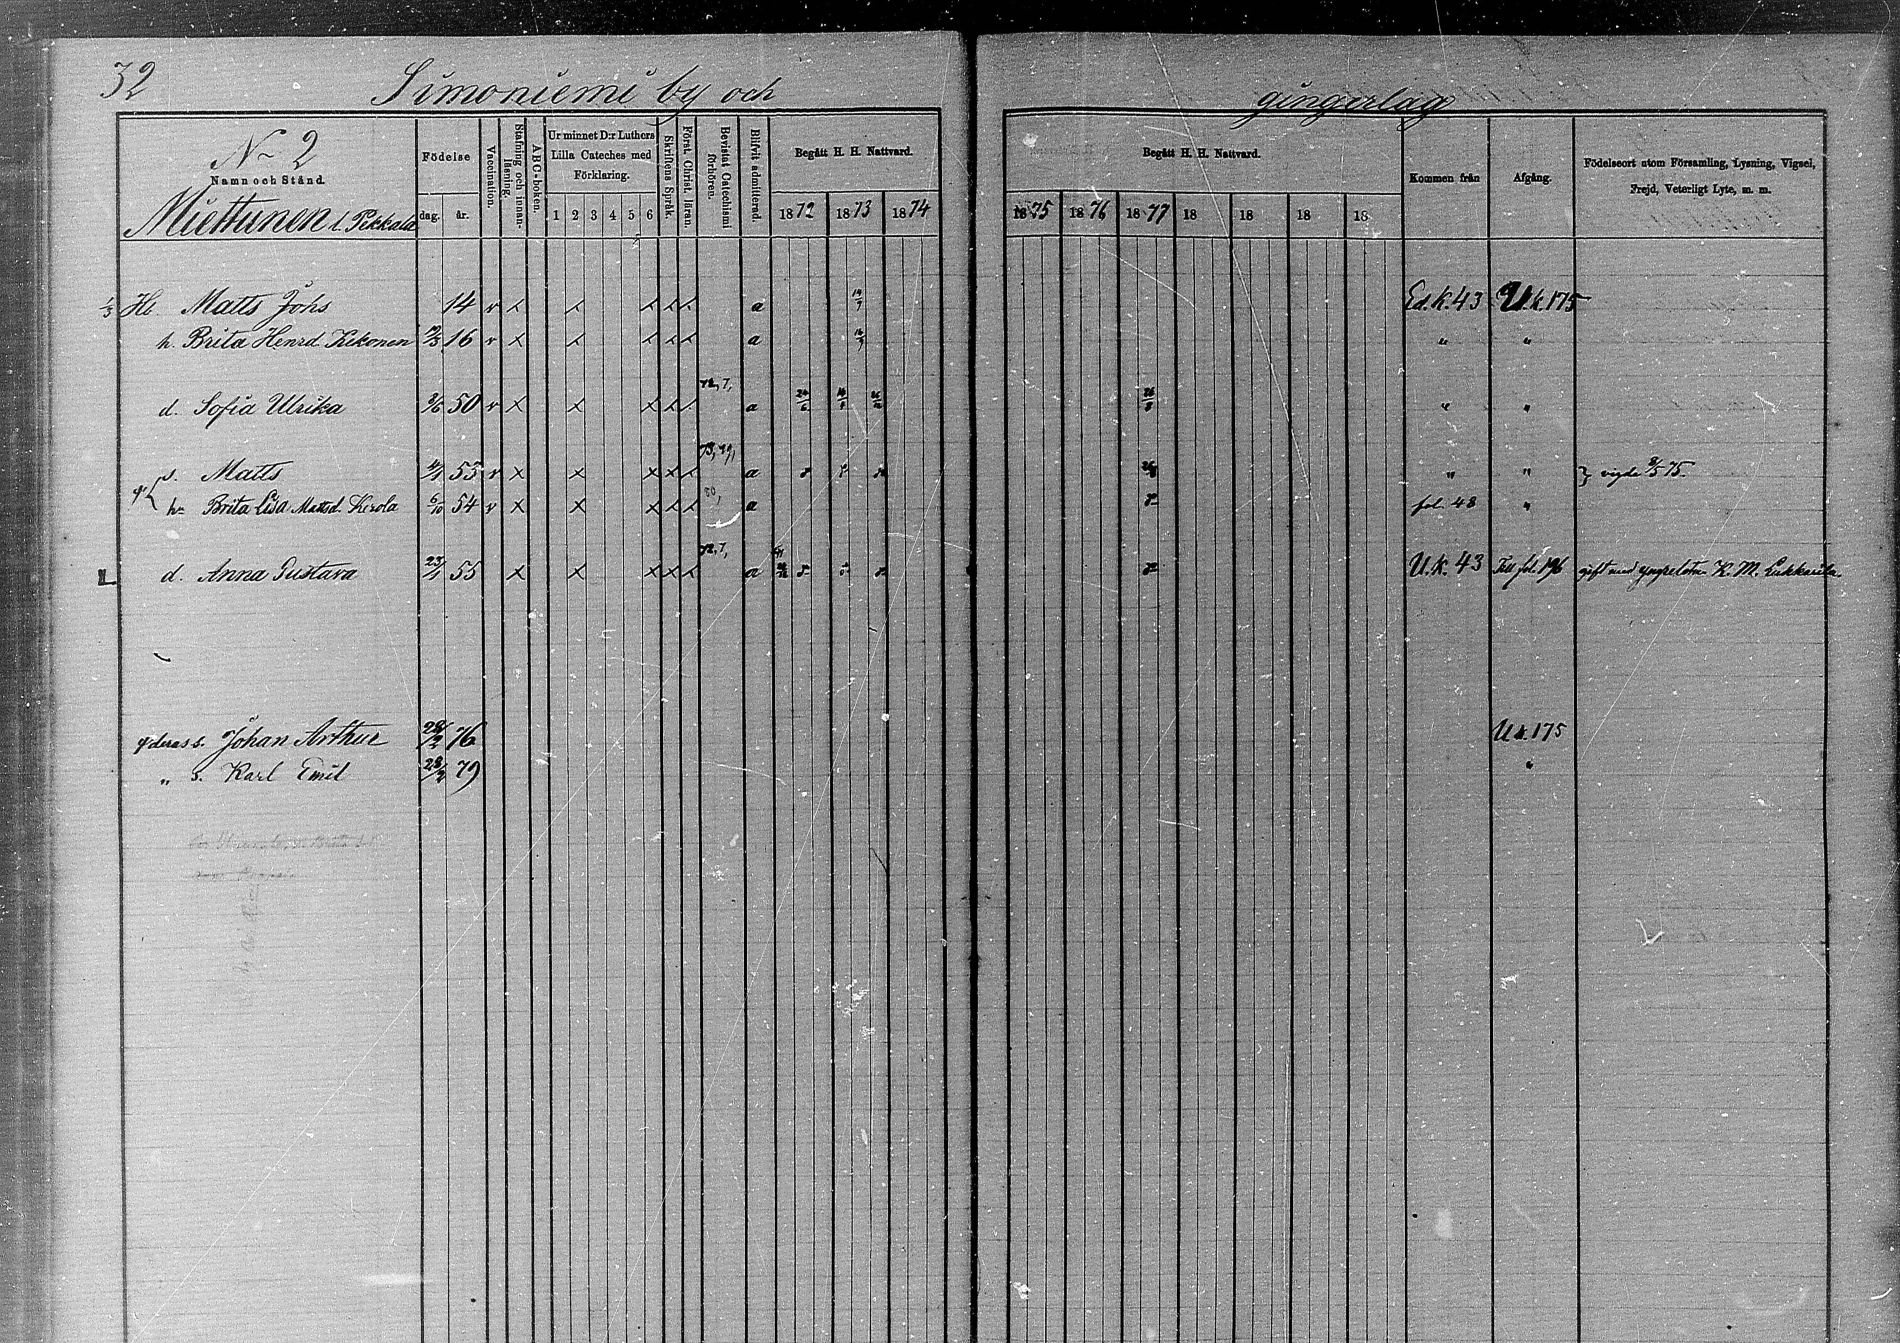 32
Simoniemi by och gingerlag
No 2
Namn och Stånd.
Miettunen l. Pekkala
Födelse
dag. år.
Vaccination.
Stafning och innan-läsning.
ABC-boken.
Ur minnet D:r Luthers Lilla Cateches med Förklaring.
1 2 3 4 5 6
Skriftens Språk.
Först. Christ. läran.
Bevistat Catechismi förhören.
Blifvit admitterad.
Begått H. H. Nattvard.
1872 1873 1874
Begått H. H. Nattvard.
1875 1876 1877 18 18 18 18
Kommen från
Afgång.
Födelseort utom Församling, Lysning, Vigsel, Frejd, Veterligt Lyte, m. m.
1/3 Hb. Matts Johs 14 v x x x x x a 14/9 Ed. k. 43 U.k. 175
h. Brita Henrd Kekonen 16 v x x x x x a " "
d. Sofia Ulrika 50 v x x x x x 72, 7, a 24/6 26/8 " "
s. Matts 53 v x x x x x a " " } vigde 75.
h. Brita Lisa Mattsd. Kerola 6/10 54 v x x x x x 80, a fol. 48 "
d. Anna Gustava 23/1 55 x x x x x 72, 7, a U.k. 43 Till fol. 196 gift med K. M. Lukkarila.
deras s. Johan Arthur 28/2 76 U k. 175
" s. Karl Emil 79 "